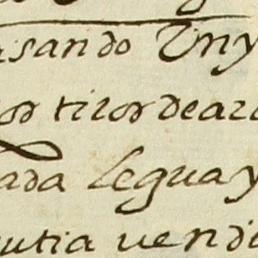 sando Vn y
os tiros de ar
ada legua y
utia vendi